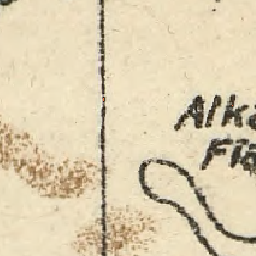 Alka
Fla